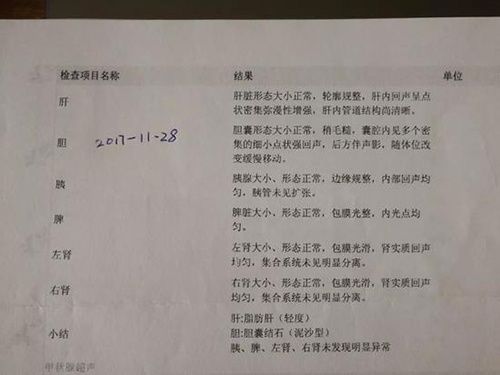 检查项目名称 结果 单位
肝 肝脏形态大小正常，轮廓规整，肝内回声呈点
状密集弥漫性增强，肝内管道结构尚清晰。
胆 2017-11-28 胆囊形态大小正常，稍毛糙，囊腔内见多个密
集的细小点状强回声，后方伴声影，随体位改
变缓慢移动。
胰 胰腺大小、形态正常，边缘规整，内部回声均
匀，胰管未见扩张。
脾 脾脏大小、形态正常，包膜光整，内光点均
匀。
左肾 左肾大小、形态正常，包膜光滑，肾实质回声
均匀，集合系统未见明显分离。
右肾 右肾大小、形态正常，包膜光滑，肾实质回声
均匀，集合系统未见明显分离。
肝:脂肪肝（轻度）
小结 胆:胆囊结石（泥沙型）
胰、脾、左肾、右肾未发现明显异常
甲状腺超声